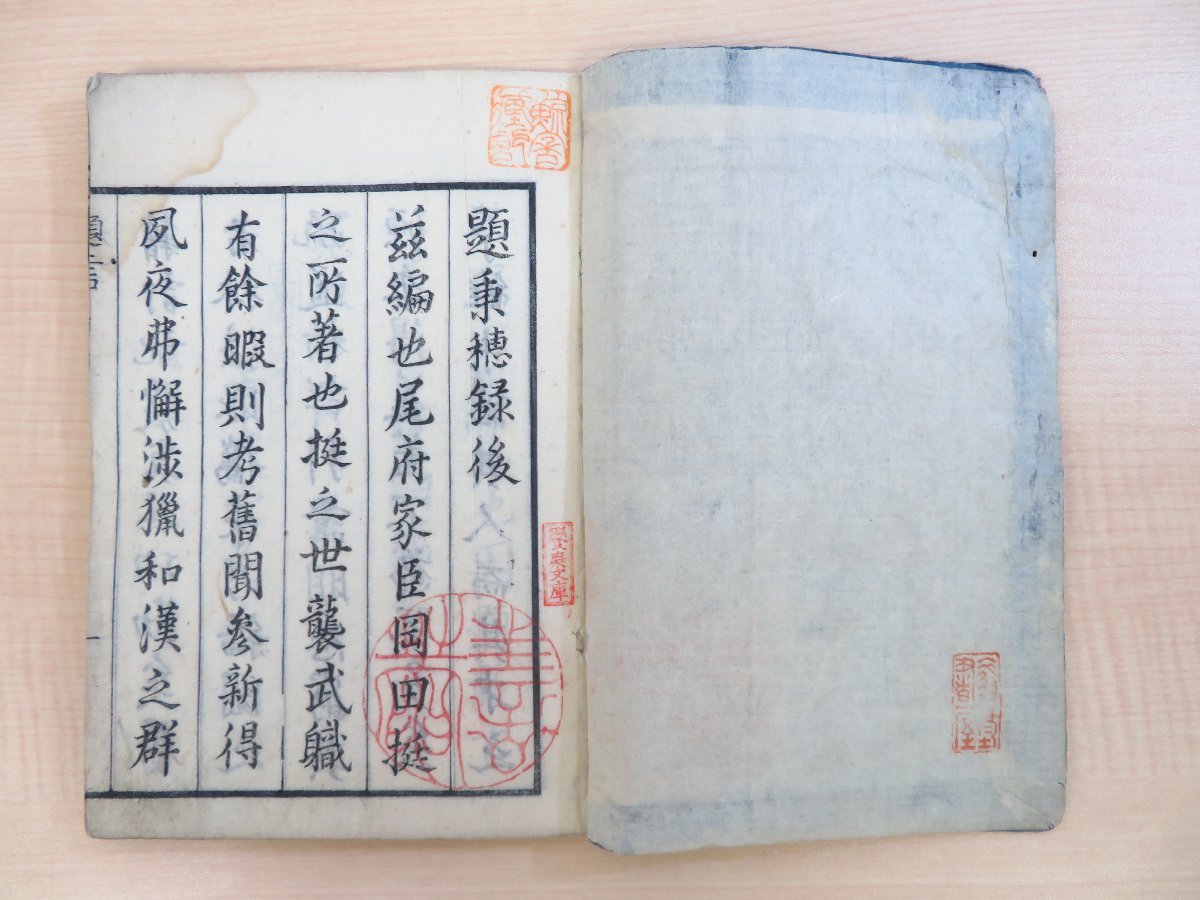 題秉穗録後
茲編也尾府家臣岡田挺
之所著也挺之世襲武職
有餘暇則考舊聞參新得
夙夜弗懈涉獵和漢之群
文庫